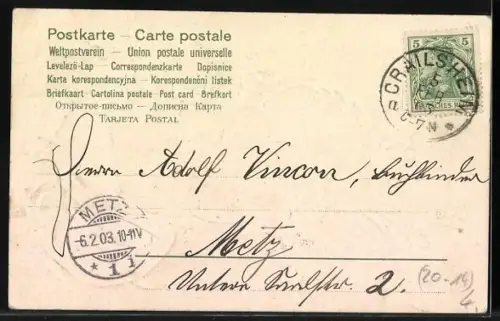 Postkarte – Carte postale
Weltpostverein – Union postale universelle
Levelező-Lap – Correspondenzkarte Dopisnice
Karta korespondencyjna – Korespondenční lístek
Briefkaart Cartolina postale Post card Brefkort
Открытое письмо – Дописна Карта
TARJETA POSTAL
5 5
CRAILSHEIM
Herrn Adolf Vincon, Buchbinder
METZ
6.2.03.10-11V
* 1 1
Metz
Untere Saalstr. 2.
(20-14)